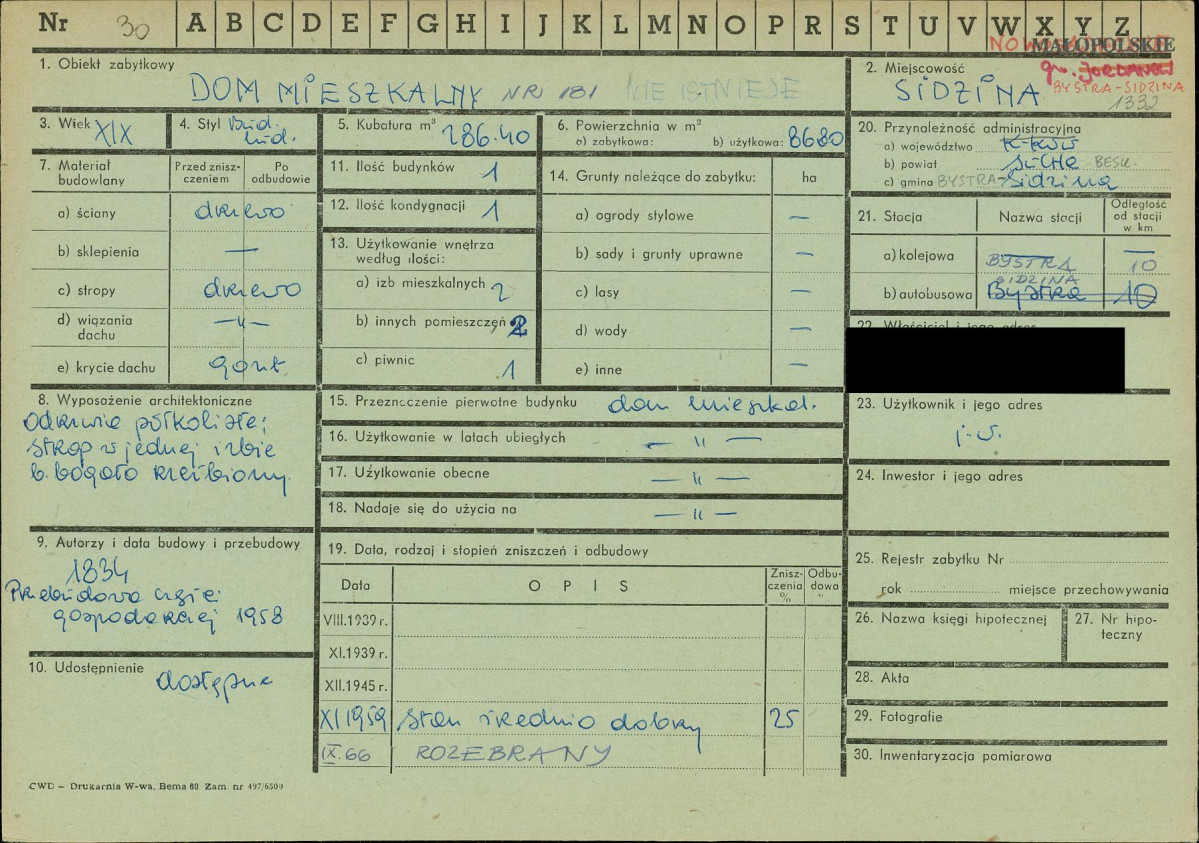 Nr 30 A B C D E F G H I J K L M N O P R S T U V W X Y Z
MAŁOPOLSKIE
1. Obiekt zabytkowy
DOM MIESZKALNY NR 181 NIE ISTNIEJE
2. Miejscowość
gm. JORDANÓW
SIDZINA
BYSTRA-SIDZINA
1332
3. Wiek XIX
4. Styl Bud. lud.
5. Kubatura m³ 286.40
6. Powierzchnia w m²
a) zabytkowa: b) użytkowa: 8680
20. Przynależność administracyjna
a) województwo K-ków
b) powiat Sucha BESK.
c) gmina BYSTRA-Sidzina
7. Materiał budowlany
Przed znisz-czeniem
Po odbudowie
a) ściany drzewo
b) sklepienia —
c) stropy drzewo
d) wiązania dachu —„—
e) krycie dachu gont
11. Ilość budynków 1
12. Ilość kondygnacji 1
13. Użytkowanie wnętrza według ilości:
a) izb mieszkalnych 2
b) innych pomieszczeń 2
c) piwnic 1
14. Grunty należące do zabytku: ha
a) ogrody stylowe —
b) sady i grunty uprawne —
c) lasy —
d) wody —
e) inne —
21. Stacja
Nazwa stacji
Odległość od stacji w km
a) kolejowa — —
BYSTRA 10
SIDZINA
b) autobusowa Bystra 10
8. Wyposażenie architektoniczne
Odrzwia półkoliste;
strop w jednej izbie
b. bogato rzeźbiony.
15. Przeznaczenie pierwotne budynku dom mieszkal.
16. Użytkowanie w latach ubiegłych — „ —
17. Użytkowanie obecne — „ —
18. Nadaje się do użycia na — „ —
23. Użytkownik i jego adres
j.w.
24. Inwestor i jego adres
9. Autorzy i data budowy i przebudowy
1834
Przebudowa części
gospodarczej 1958
10. Udostępnienie
dostępne
19. Data, rodzaj i stopień zniszczeń i odbudowy
Data
O P I S
Znisz-czenia %
Odbu-dowa "
VIII.1939 r.
XI.1939 r.
XII.1945 r.
XI 1959 stan średnio dobry 25
IX.66 ROZEBRANY
25. Rejestr zabytku Nr
rok miejsce przechowywania
26. Nazwa księgi hipotecznej
27. Nr hipo-teczny
28. Akta
29. Fotografie
30. Inwentaryzacja pomiarowa
CWD – Drukarnia W-wa, Bema 60 Zam. nr 497/6500